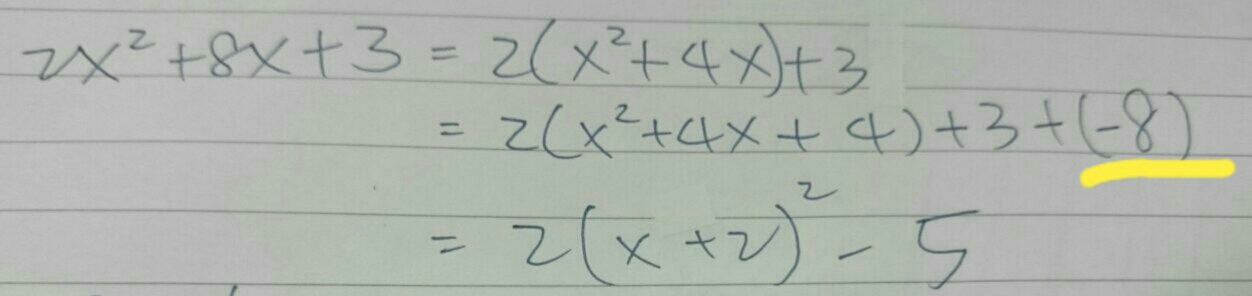 2x²+8x+3 = 2(x²+4x)+3
= 2(x²+4x+4)+3+(-8)
= 2(x+2)²-5